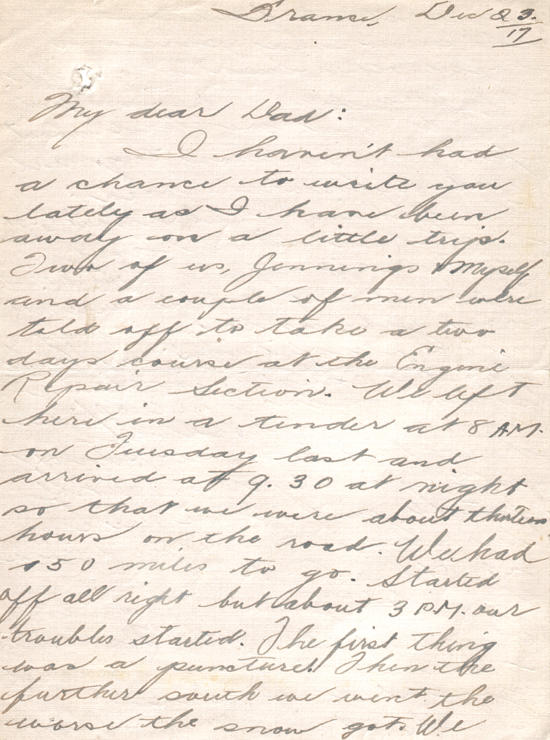 France, Dec 23.
17
My dear Dad:
I haven't had
a chance to write you
lately as I have been
away on a little trip.
Two of us, Jennings & Myself
and a couple of men were
told off to take a two
days course at the Engine
Repair Section. We left
here in a tender at 8 A.M.
on Tuesday last and
arrived at 9.30 at night
so that we were about thirteen
hours on the road. We had
150 miles to go. Started
off all right but about 3 P.M. our
troubles started. The first thing
was a puncture. Then the
further south we went the
worse the snow got. We